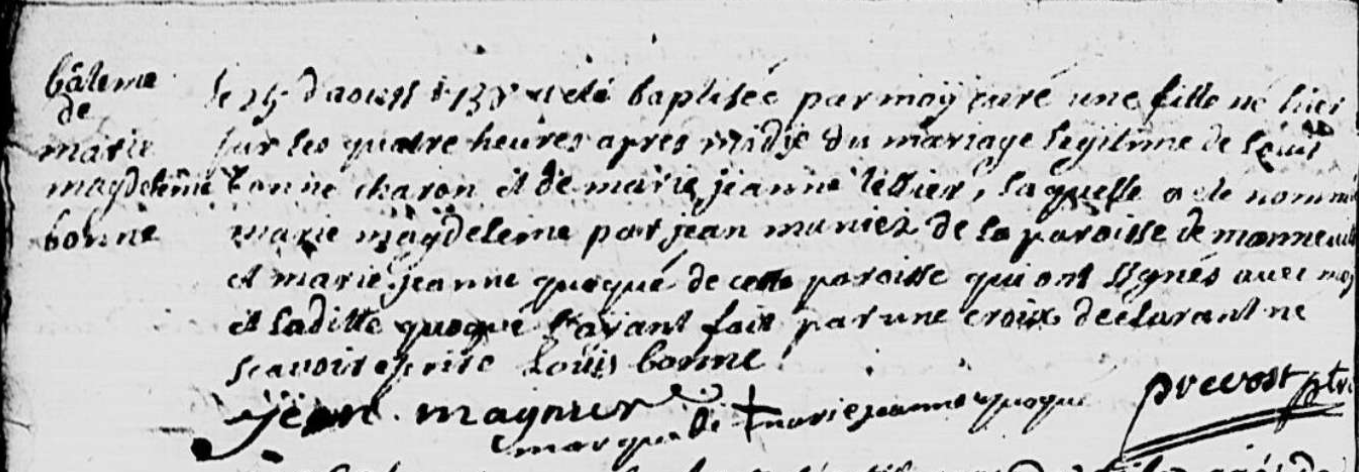 bâteme
de
marie
magdeleine
bonne
le 25 d'aoust a eté baptisée par moy curé une fille né hier
sur les quatre heures apres midy du mariage legitime de Louis
bonne charon et de marie jeanne tellier, laquelle a ete nommé
marie magdeleine par jean de la paroisse de
et marie jeanne quoqué de cette paroisse qui ont signés avec moy
et laditte quoqué l'ayant fait par une croix declarant ne
scavoir escrire Louis bonne
jean magnier
marque de + marie jeanne quoqué
prevost ptre